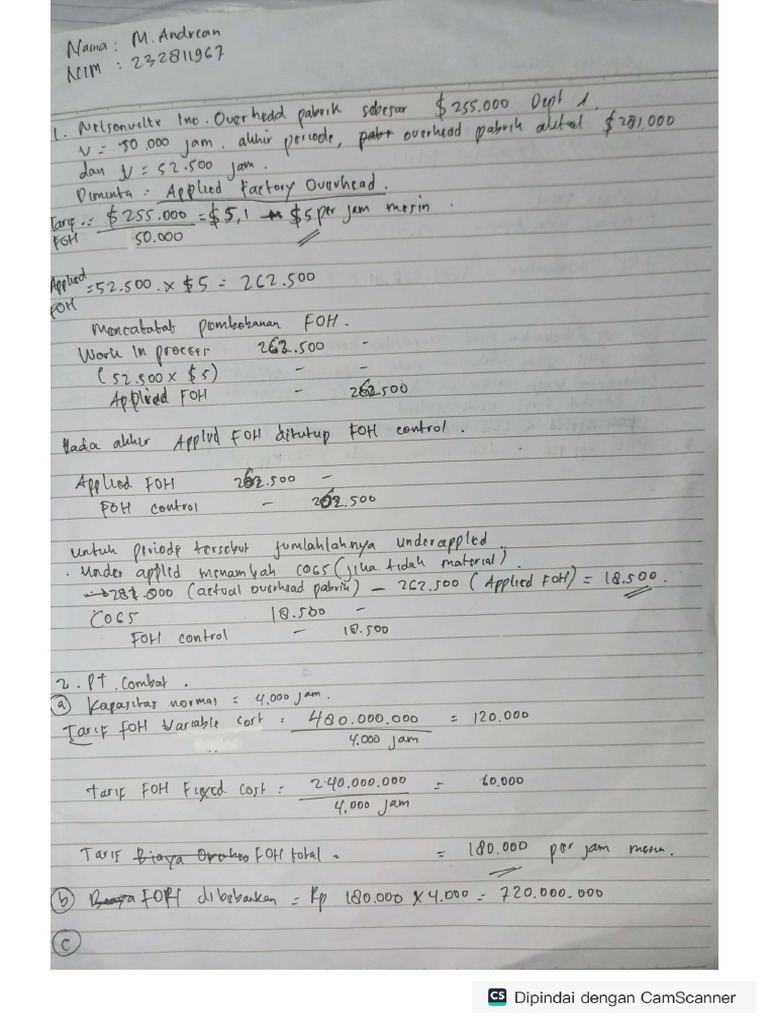 Nama : M. Andrean
NIM : 232811967
1. Nelsonville Inc. Overhead pabrik sebesar $ 255.000 Dept 1.
N = 50.000 jam. akhir periode, pabr overhead pabrik aktual $ 281.000
dan N = 52.500 jam.
Diminta : Applied Factory Overhead.
Tarif FOH = $ 255.000 = $ 5,1 $ 5 per jam mesin.
50.000
Applied FOH = 52.500 x $ 5 = 262.500
Mencatat pembebanan FOH.
Work In process 262.500 -
(52.500 x $ 5) - -
Applied FOH - 262.500
Pada akhir Applied FOH ditutup FOH control.
Applied FOH 262.500 -
FOH control - 262.500
untuk periode tersebut jumlahlahnya underapplied
. Under applied menambah COGS (jika tidak material).
→ 281.000 (actual overhead pabrik) - 262.500 (Applied FOH) = 18.500.
COGS 18.500 -
FOH control - 18.500
2. PT. Combat.
(a) Kapasitas normal = 4.000 jam.
Tarif FOH Variable cost = 480.000.000 = 120.000
4.000 jam
Tarif FOH Fixed cost = 240.000.000 = 60.000
4.000 jam
Tarif Biaya FOH total = = 180.000 per jam mesin.
(b) Biaya FOH dibebankan = Rp 180.000 x 4.000 = 720.000.000
(c)
CS Dipindai dengan CamScanner